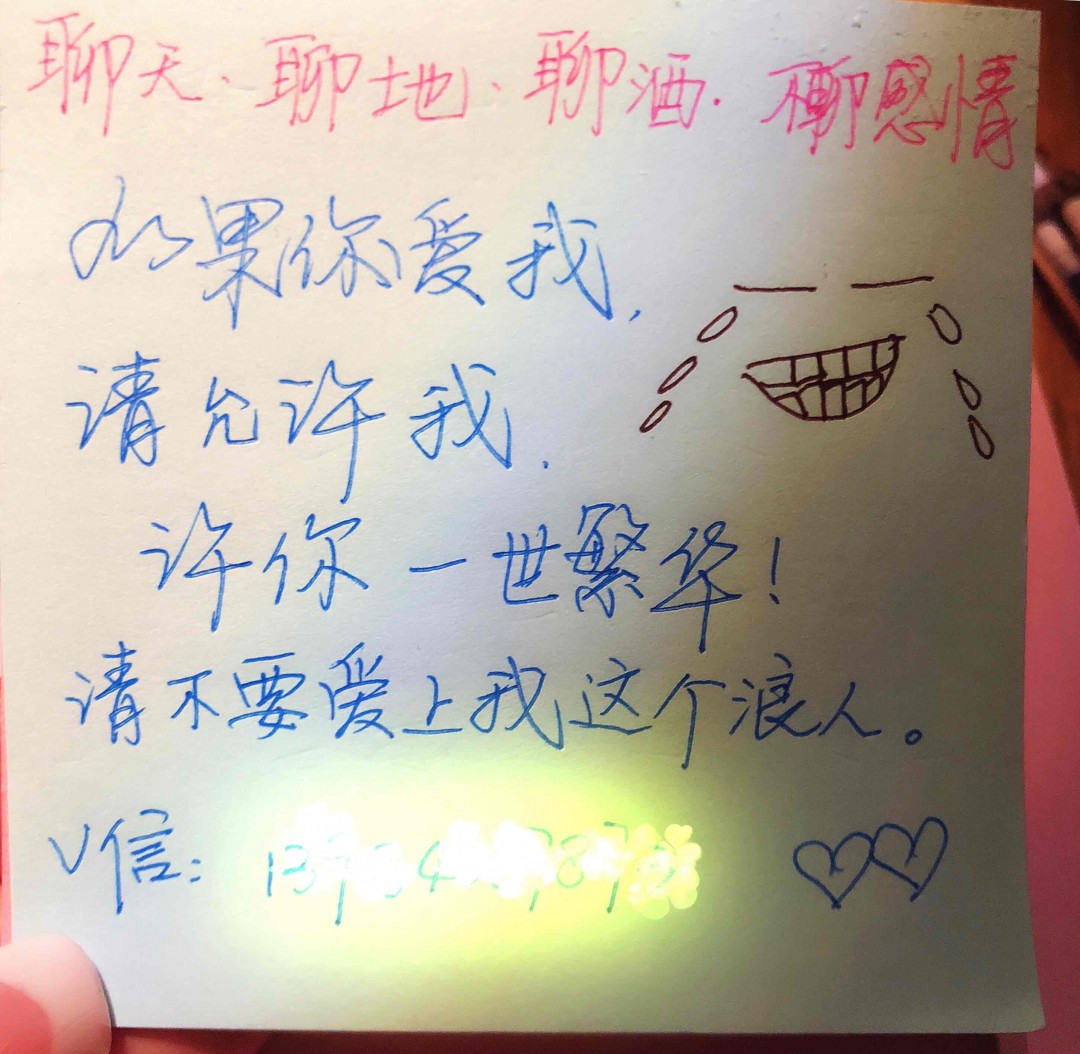 聊天、聊地、聊酒.不聊感情
如果你爱我,
请允许我.
许你一世繁华!
请不要爱上我这个浪人。
V信: